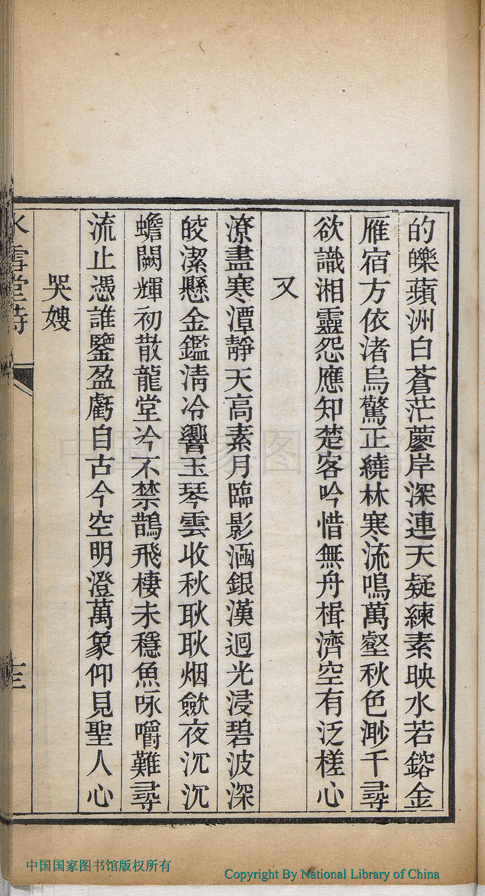 的皪蘋洲白蒼茫蓼岸深連天疑練素映水若鎔金
雁宿方依渚烏驚正繞林寒流鳴萬壑秋色渺千尋
欲識湘靈怨應知楚客吟惜無舟楫濟空有泛槎心
又
潦盡寒潭靜天高素月臨影涵銀漢迥光浸碧波深
皎潔懸金鑑清冷響玉琴雲收秋耿耿烟斂夜沉沉
蟾闕輝初散龍堂冷不禁鵲飛棲未穩魚咏嚼難尋
流止憑誰鑒盈虧自古今空明澄萬象仰見聖人心
哭嫂
雪堂詩
中国国家图书馆版权所有
Copyright By National Library of China